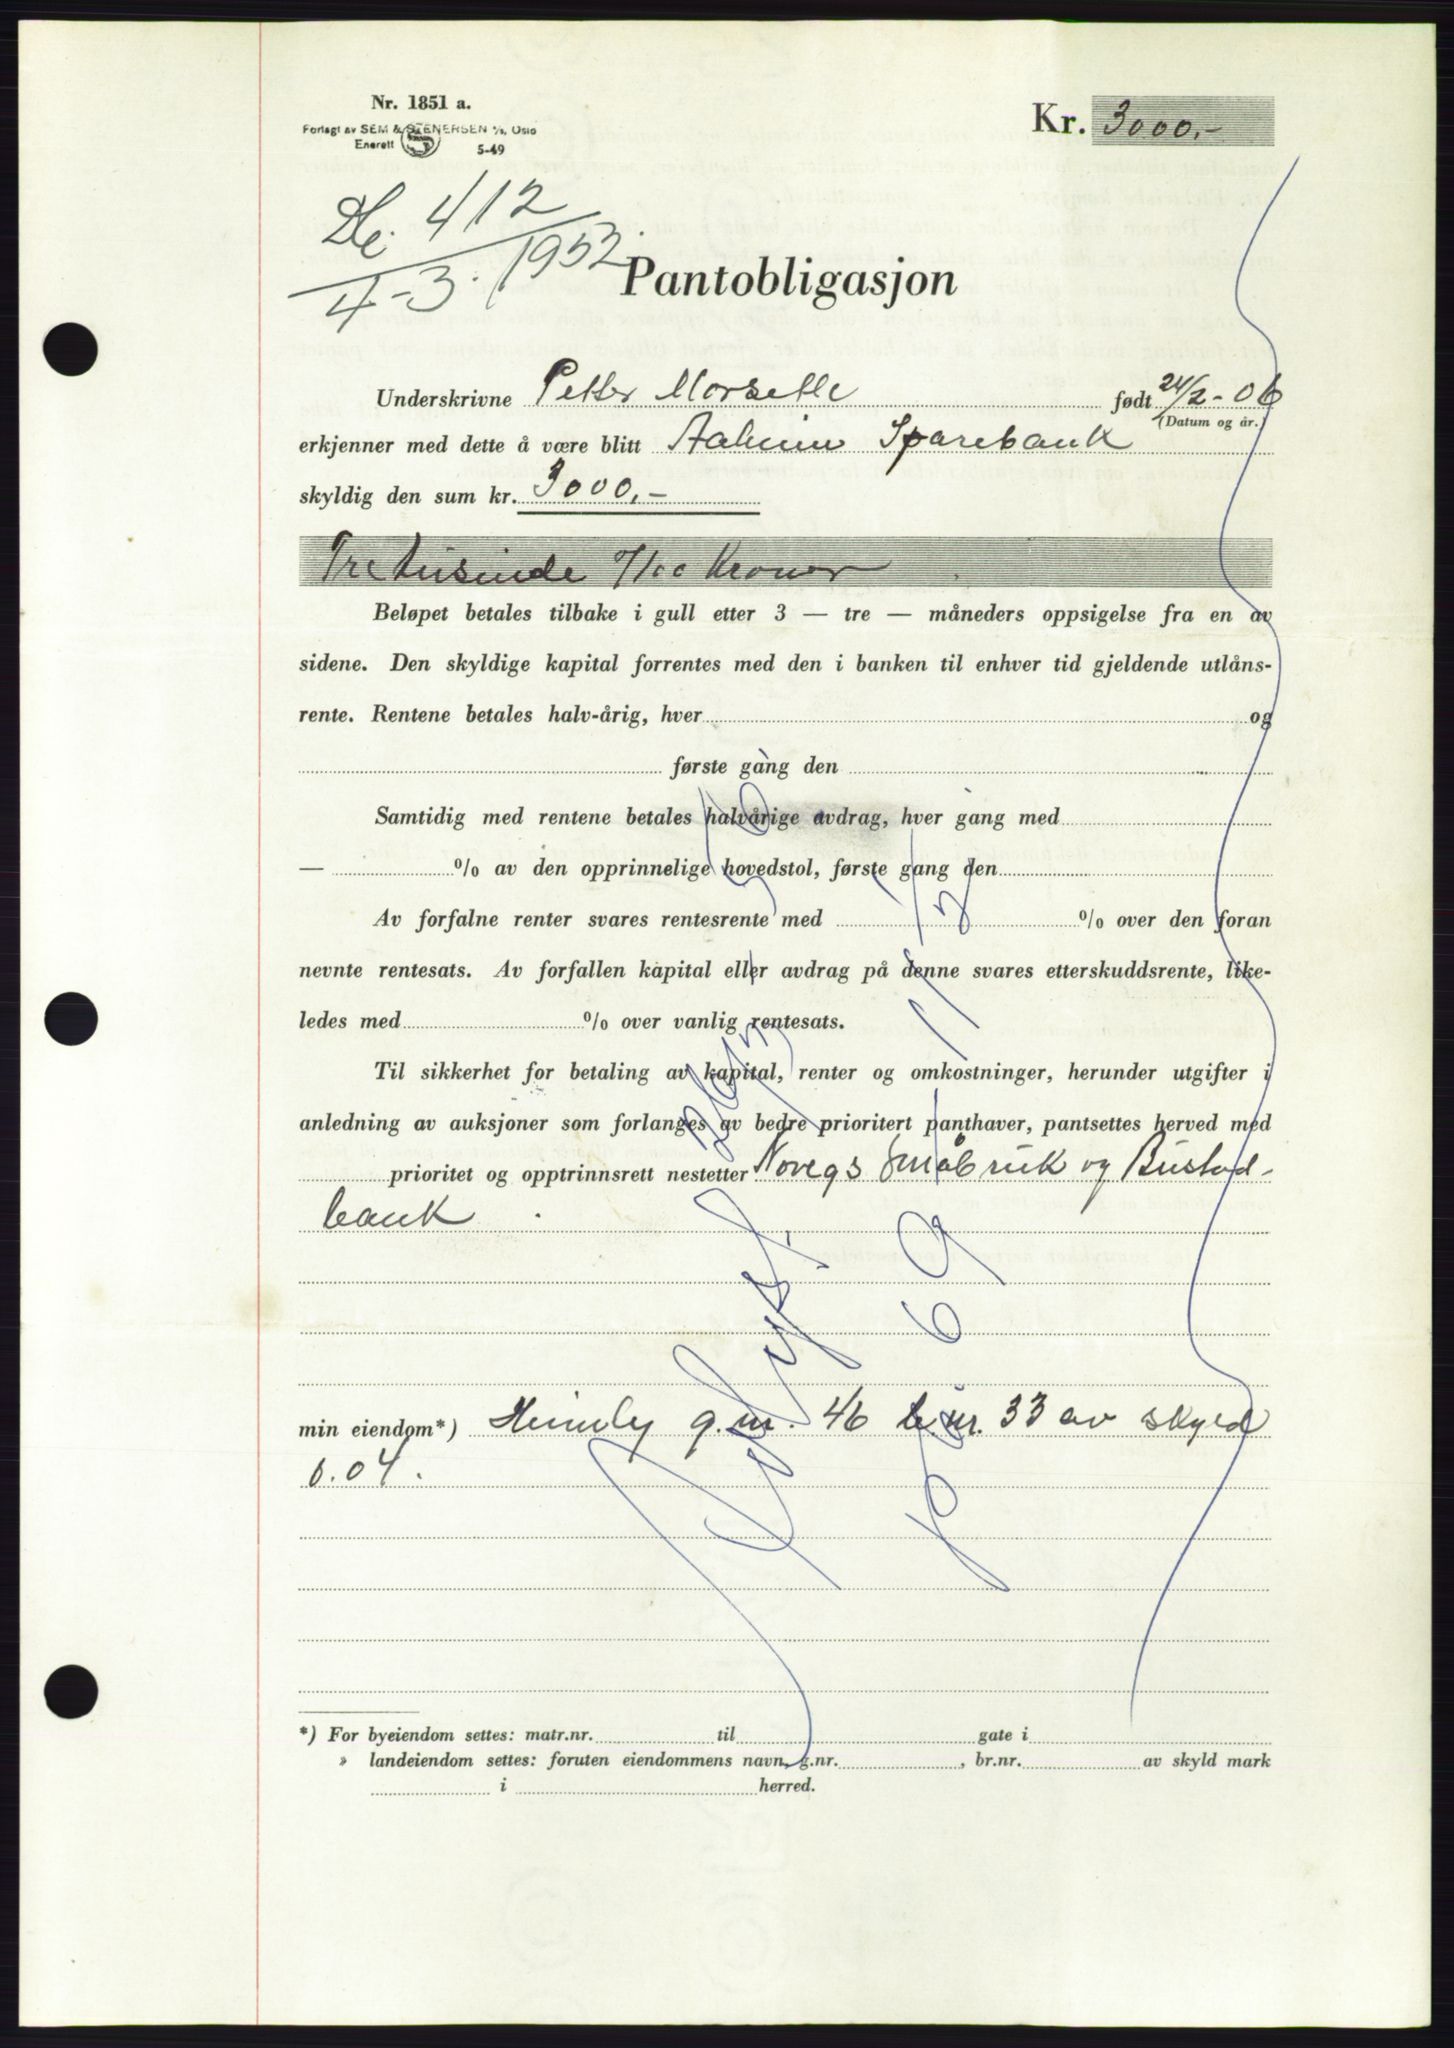 Nr. 1851 a.
Forlagt av SEM & STENERSEN A/S, Oslo
Enerett
5-49
Kr. 3000,-
412
4-3. 1953.
Pantobligasjon
Underskrivne Petter Morsette født 24/2-06
(Datum og år.)
erkjenner med dette å være blitt Aaheim Sparebank
skyldig den sum kr. 3000,-
Tretusinde 0/100 Kroner
Beløpet betales tilbake i gull etter 3 — tre — måneders oppsigelse fra en av
sidene. Den skyldige kapital forrentes med den i banken til enhver tid gjeldende utlåns-
rente. Rentene betales halv-årig, hver og
første gang den
Samtidig med rentene betales halvårige avdrag, hver gang med
— % av den opprinnelige hovedstol, første gang den
Av forfalne renter svares rentesrente med % over den foran
nevnte rentesats. Av forfallen kapital eller avdrag på denne svares etterskuddsrente, like-
ledes med % over vanlig rentesats.
Til sikkerhet for betaling av kapital, renter og omkostninger, herunder utgifter i
anledning av auksjoner som forlanges av bedre prioritert panthaver, pantsettes herved med
prioritet og opptrinnsrett nestetter Noregs Småbruk og Bustad-
bank
min eiendom*) Heimly g.nr. 46 b.nr. 33 av skyld
0.04.
*) For byeiendom settes: matr.nr. til gate i
» landeiendom settes: foruten eiendommens navn, g.nr. , br.nr. av skyld mark
i herred.
Avlyst